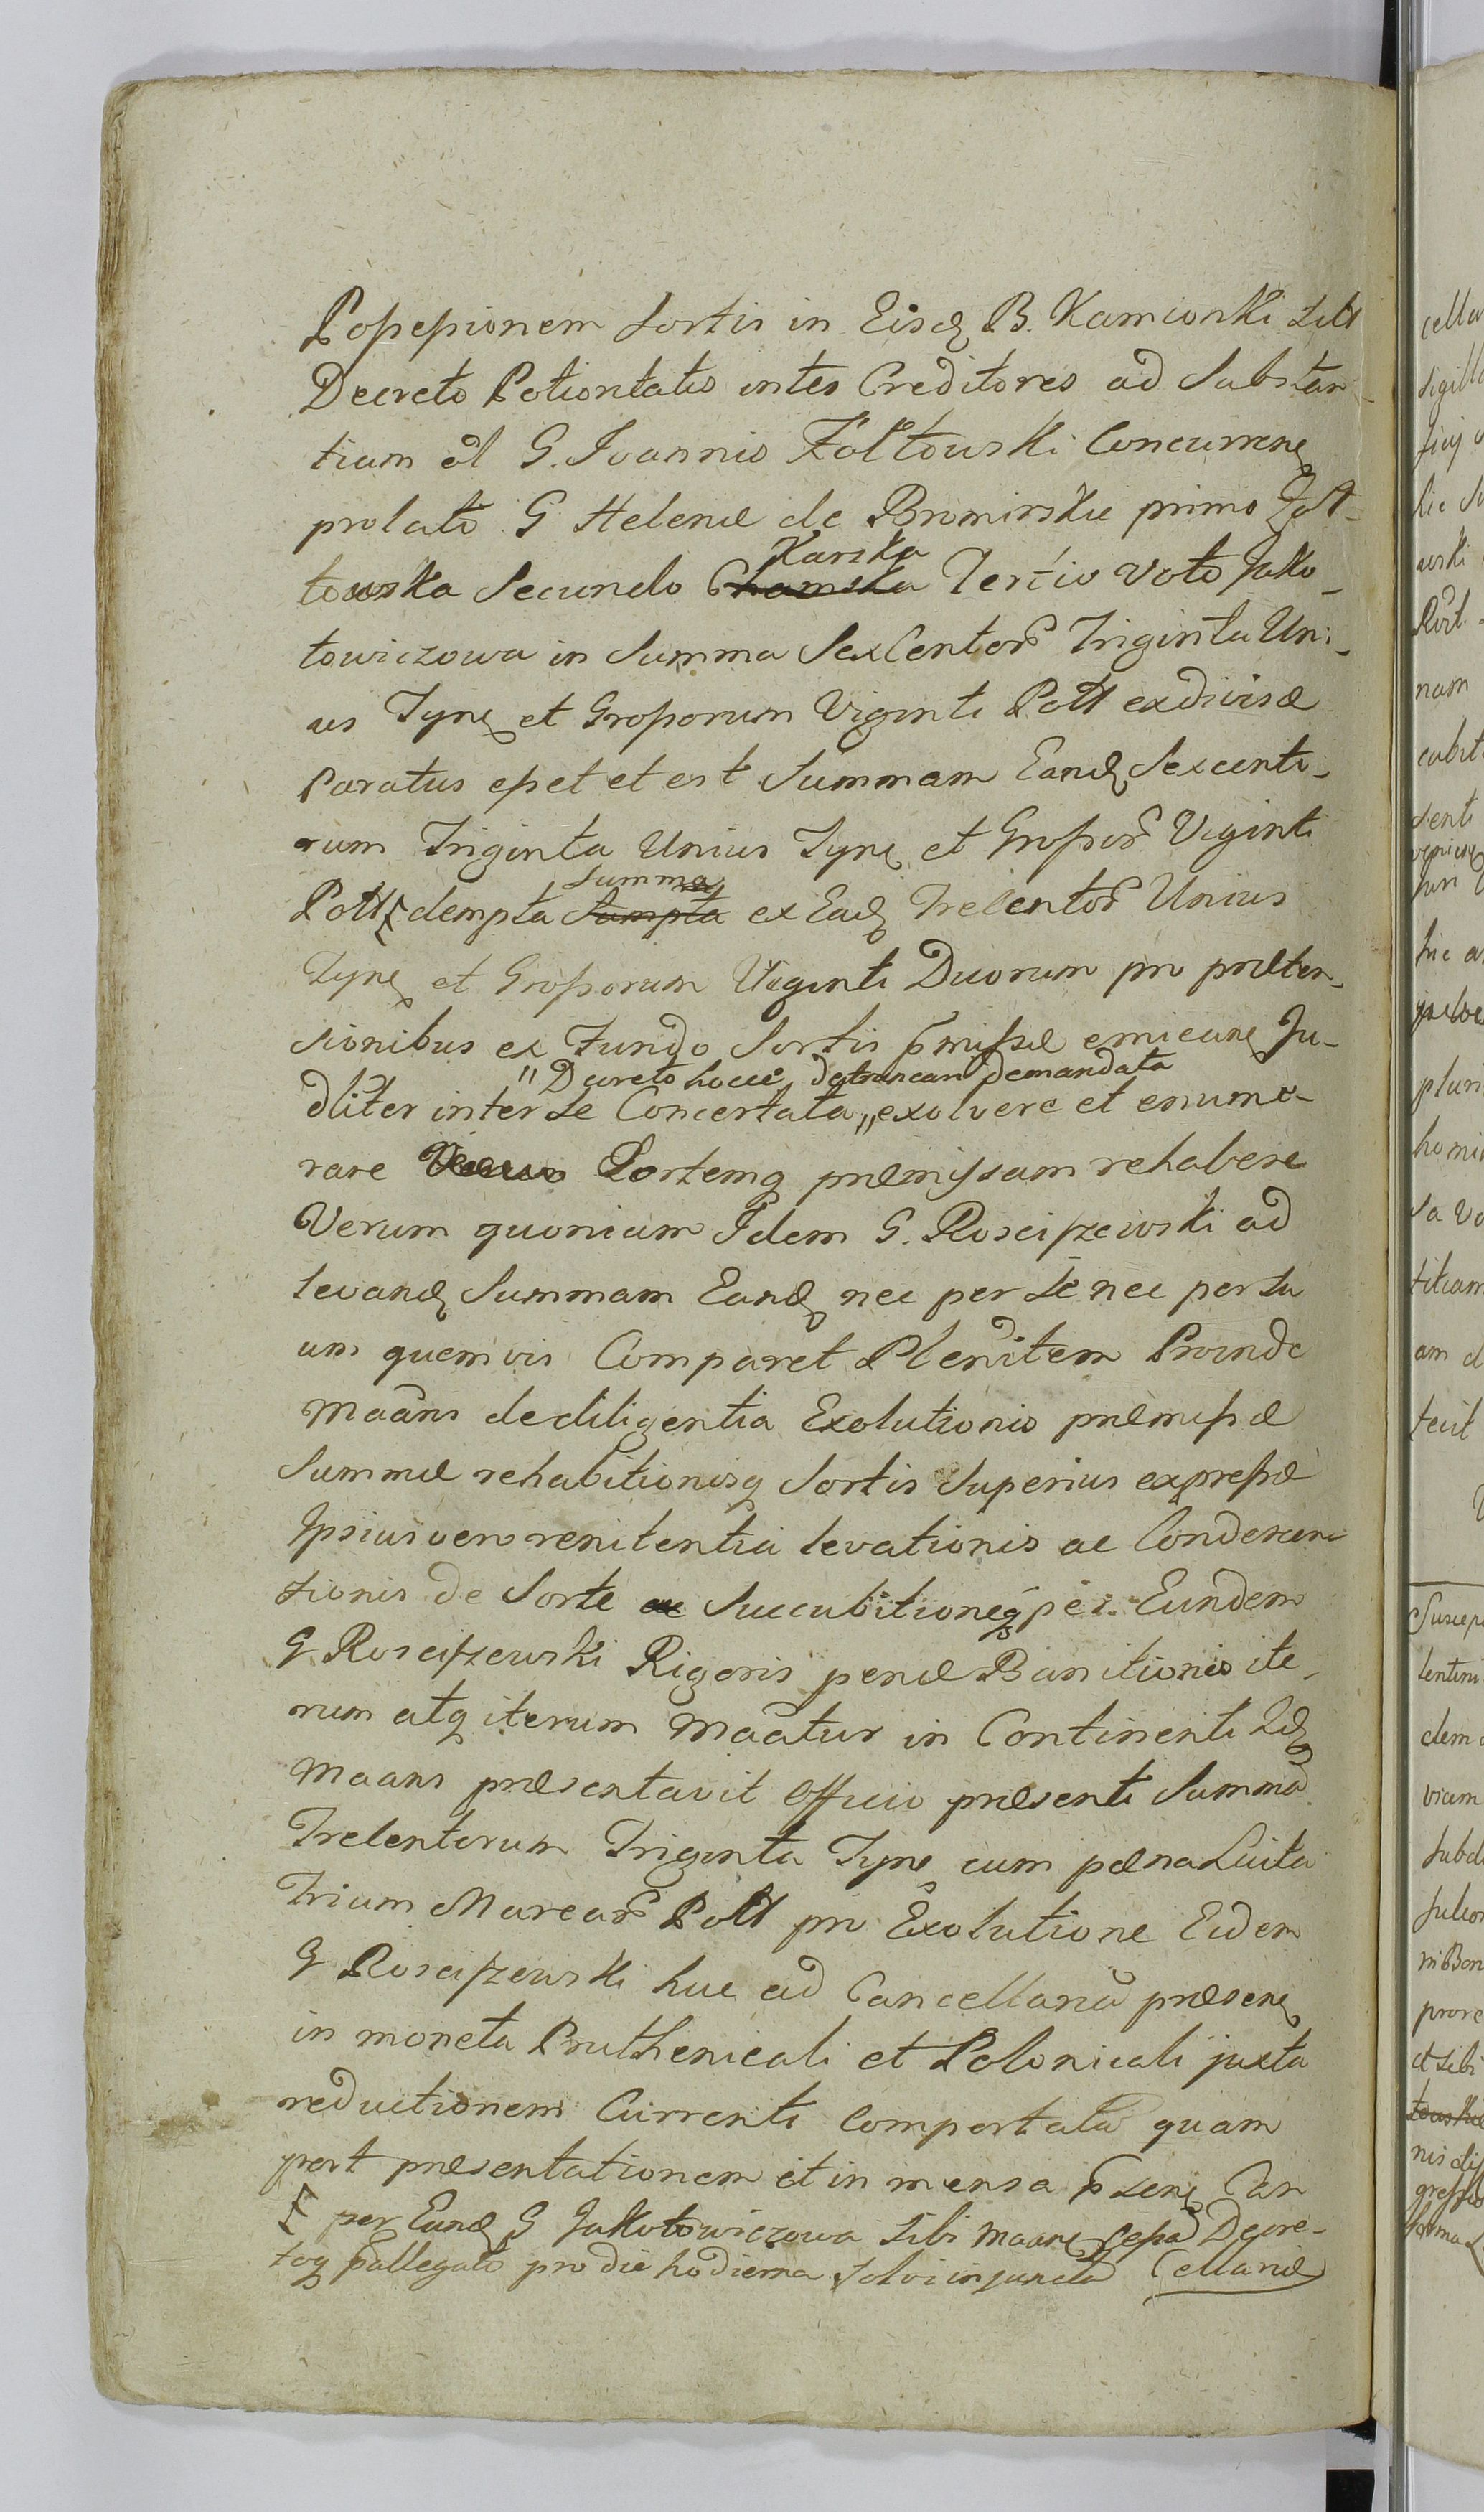 Possessionem Sortis in Eisd B. Kamionki titt
Decreto Potioritatis inter Creditores ad Substan-
tiam ol G. Ioannis Żółtowski Concurrene
prolato G Helenæ de Bromirskie primo Żoł-
towska Secundo Chamska Karska Tertio Voto Jako-
towiczowa in Summa SexCentor Triginta Uni-
us Tyne et Grossorum Viginti Poll exdivisæ
Paratus esset et est Summam Eand Sexcento-
rum Triginta Unius Tyne et Grossor Viginti
Poll dempta Sumpta Summa ex Ead TreCentor Unius
Tyne et Grossorum Viginti Duorum pro præten-
sionibus ex Fundo Sortis p̄missæ emicane Ju-
"Decreto hocce detruncari demandata
dliter inter Se Concertata,, exolvere et enume-
rare Sortemq præmissam rehabere
Verum quoniam Idem G. Rosciszewski ad
levand Summam Eand nec per Se nec per Su
um quemvis Comparet Plenditem Proinde
Maans de diligentia Exolutionis præmissæ
Summæ rehabitionisq Sortis Superius expressæ
Ipsius vero renitentia levationis ac Condescen
sionis de Sorte ac Succubitioneq per Eundem
G Rosciszewski Rigoris penæ Banitionis ite-
rum atq iterum Maatur in Continenti Id
Maans præsentavit Officio præsenti Summa
TreCentorum Triginta Tyne cum pæna Luita
Trium Marcar Poll pro Exolutione Eidem
G Rosciszewski huc ad Cancellaria præsene
in moneta Pruthenicali et Polonicali juxta
reductionem Currenti Comportata quam
post præsentationem et in mensa p̄sene Can
per Eand G Jakotowiczowa Sibi Maane Cessa Decre-
toq p̄allegato pro die hodierna Solvi injuncta Cellariæ